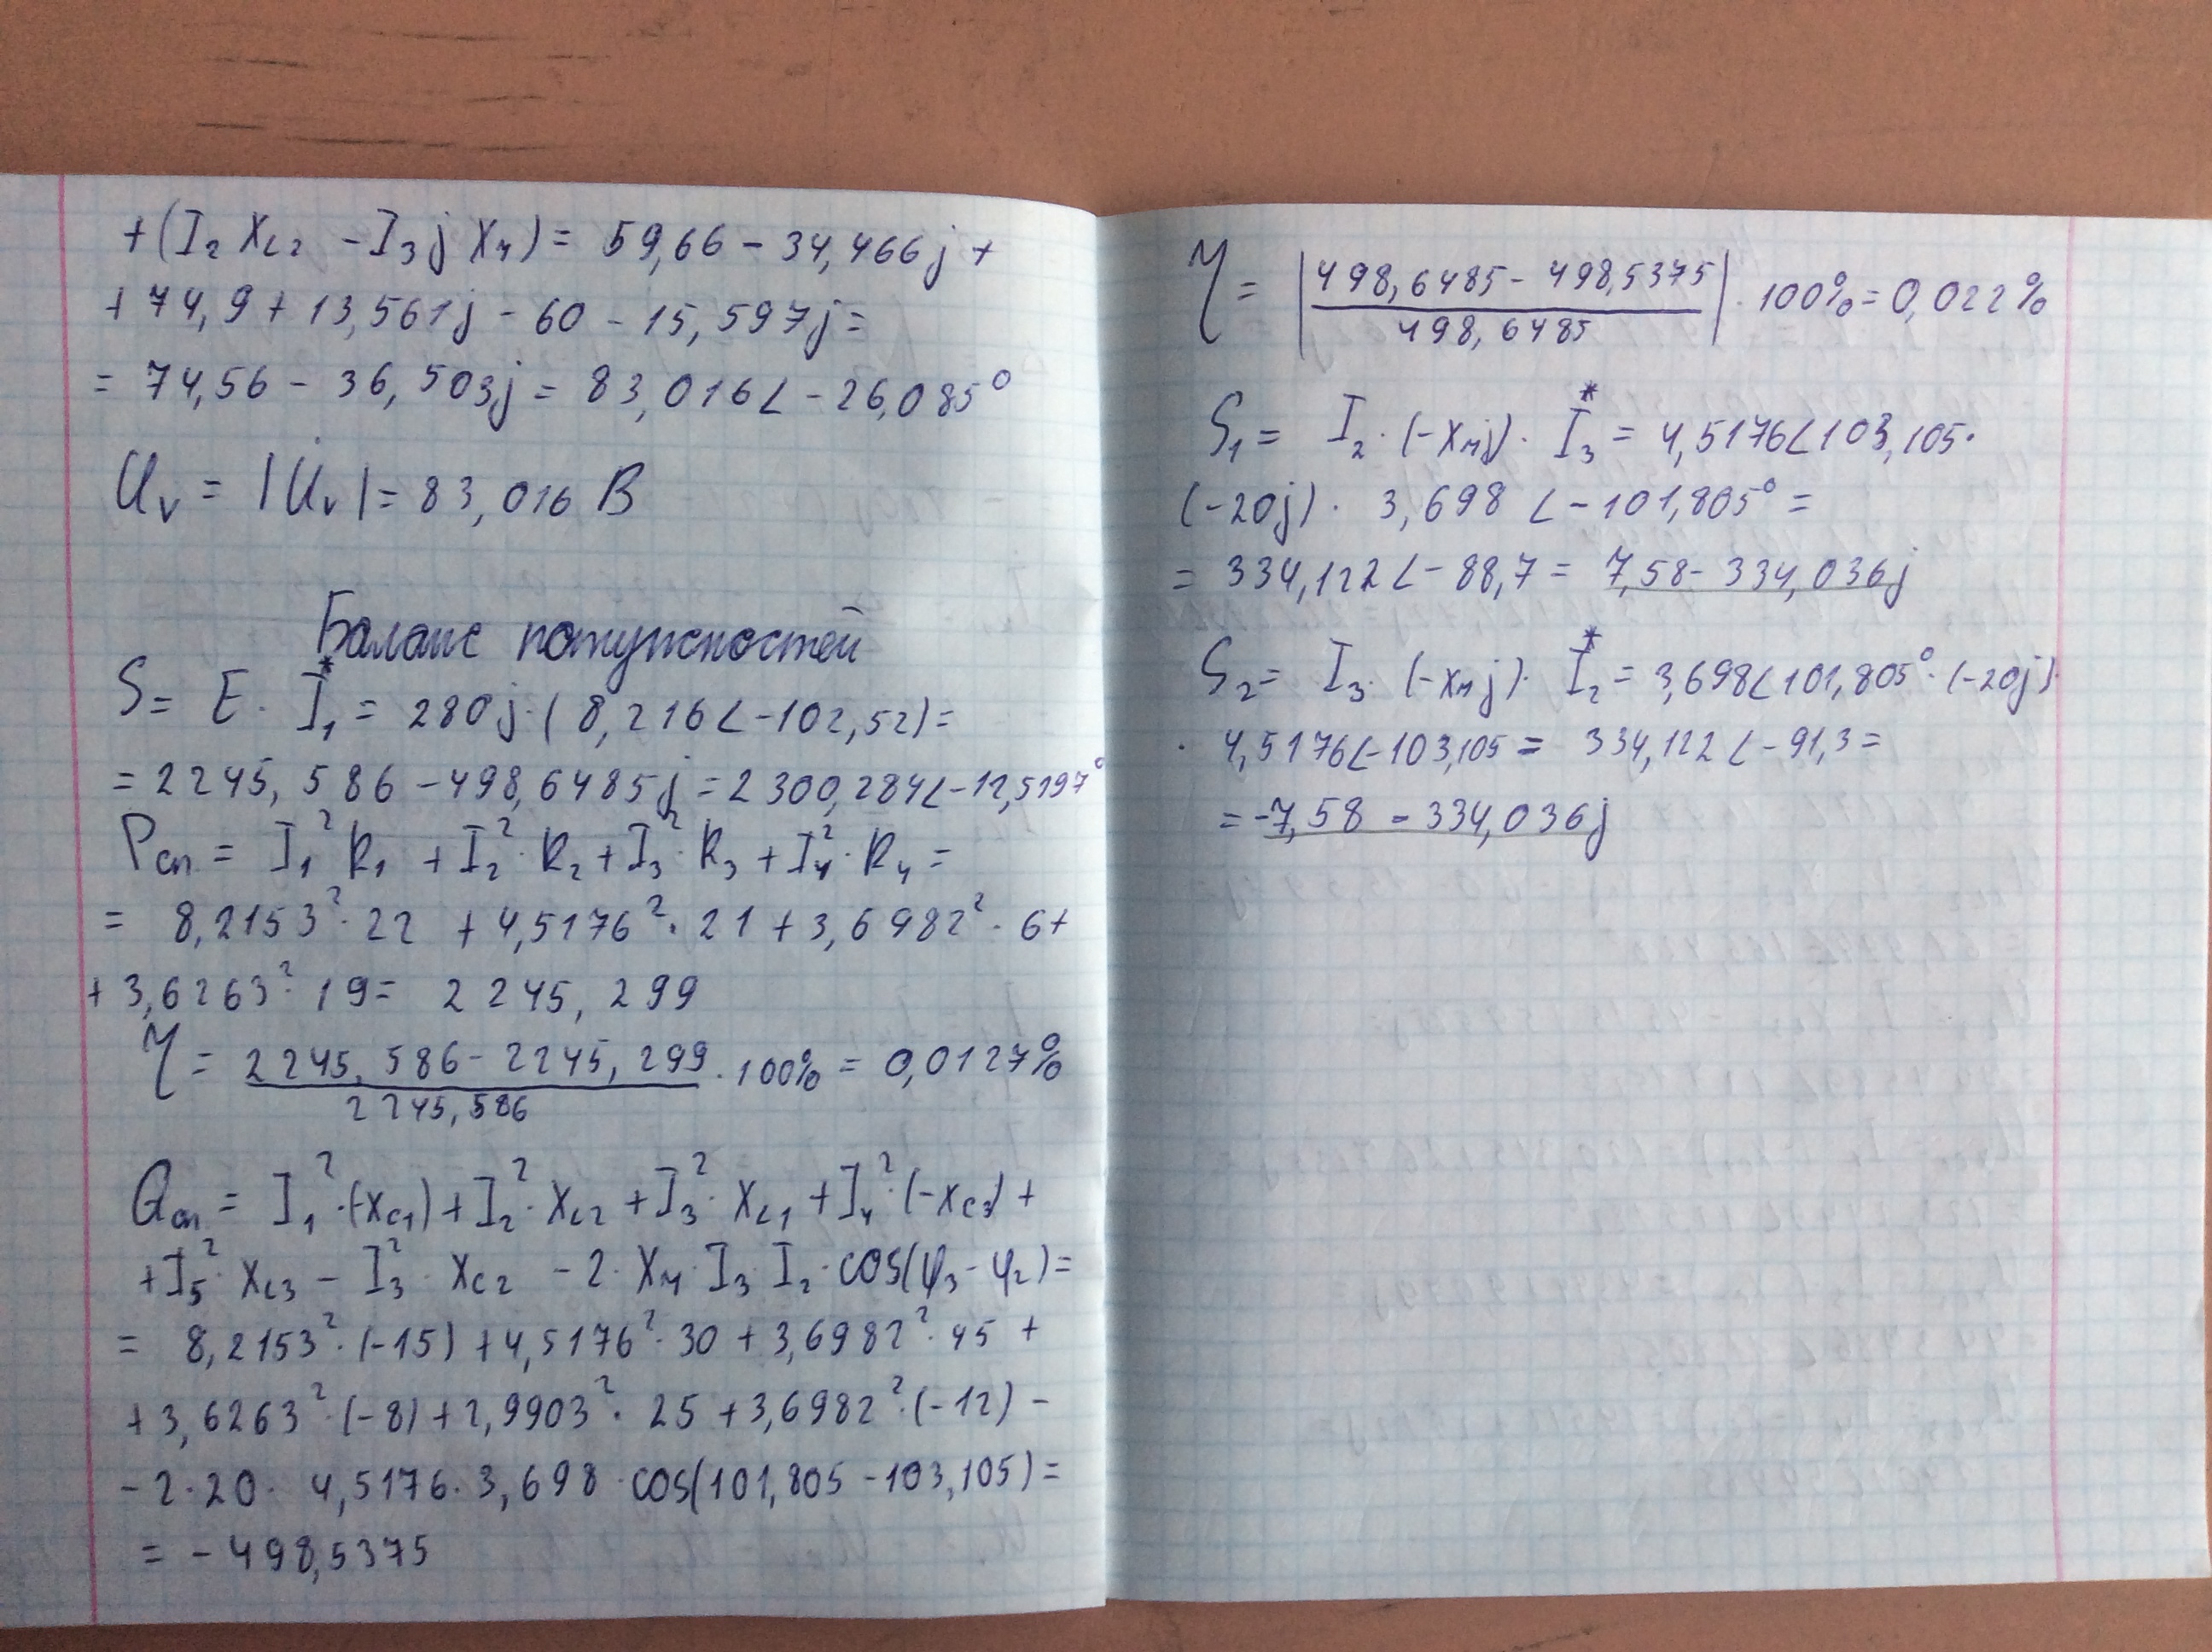 +(I₂ X_L₂ - I₃ j X_M) = 59,66 - 34,466j +
+ 74,9 + 13,561j - 60 - 15,597j =
= 74,56 - 36,503j = 83,016∠-26,085°
U_V = |U̇_V| = 83,016 В
Баланс потужностей
S = E · I₁* = 280j · (8,216∠-102,52) =
= 2245,586 - 498,6485j = 2300,284∠-12,5197°
P_сп = I₁² R₁ + I₂² · R₂ + I₃² · R₃ + I₄² · R₄ =
= 8,2153² · 22 + 4,5176² · 21 + 3,6982² · 6 +
+ 3,6263² · 19 = 2245,299
η = (2245,586 - 2245,299)/2245,586 · 100% = 0,0127%
Q_сп = I₁² · (-X_C1) + I₂² · X_L2 + I₃² · X_L1 + I₄² · (-X_C3) +
+ I₅² · X_L3 - I₃² · X_C2 - 2 · X_M · I₃ I₂ · cos(φ₃ - φ₂) =
= 8,2153² · (-15) + 4,5176² · 30 + 3,6982² · 45 +
+ 3,6263² · (-8) + 2,9903² · 25 + 3,6982² · (-12) -
- 2 · 20 · 4,5176 · 3,698 · cos(101,805 - 103,105) =
= - 498,5375
η = |(498,6485 - 498,5375)/498,6485| · 100% = 0,022%
S₁ = I₂ · (-X_M j) · I₃* = 4,5176∠103,105 ·
(-20j) · 3,698 ∠-101,805° =
= 334,122∠-88,7 = 7,58 - 334,036j
S₂ = I₃ · (-X_M j) · I₂* = 3,698∠101,805° · (-20j) ·
· 4,5176∠-103,105 = 334,122∠-91,3 =
= -7,58 - 334,036j